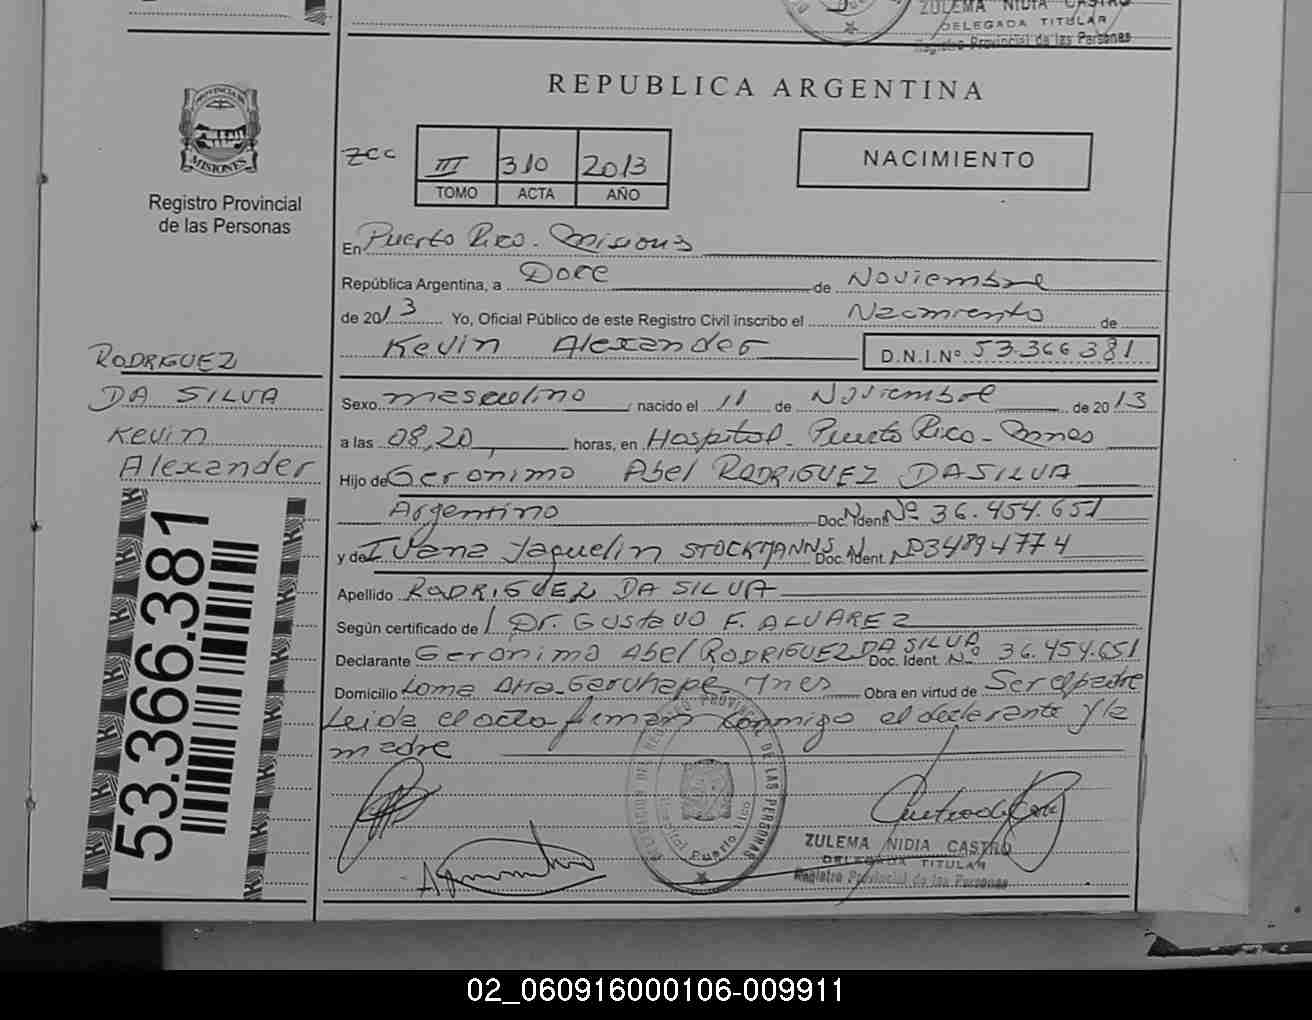 ZULEMA NIDIA CASTRO
DELEGADA TITULAR
Registro Provincial de las Personas
PROVINCIA DE
MISIONES
Registro Provincial
de las Personas
REPUBLICA ARGENTINA
III 310 2013
TOMO ACTA AÑO
NACIMIENTO
En Puerto Rico. Misiones
República Argentina, a Doce de Noviembre
de 2013 Yo, Oficial Público de este Registro Civil inscribo el Nacimiento de
Kevin Alexander D.N.I.Nº 53.366.381
RODRIGUEZ
DA SILVA
Kevin
Alexander
53.366.381
Sexo masculino nacido el 11 de Noviembre de 2013
a las 08,20 horas, en Hospital - Puerto Rico - Mnes
Hijo de Geronimo Abel RODRIGUEZ DA SILVA
Argentino Doc. Ident. Nº 36.454.651
y de Ivana Yaquelin STOCKMANNS Doc. Ident. D34894774
Apellido RODRIGUEZ DA SILVA
Según certificado de Dr. Gustavo F. ALVAREZ
Declarante Geronimo Abel RODRIGUEZ DA SILVA Doc. Ident. Nº 36.454.651
Domicilio Loma Alta - Garuhapé - Mnes Obra en virtud de Ser el padre
Leida el acta firman conmigo el declarante y la
madre
ZULEMA NIDIA CASTRO
DELEGADA TITULAR
Registro Provincial de las Personas
02_060916000106-009911